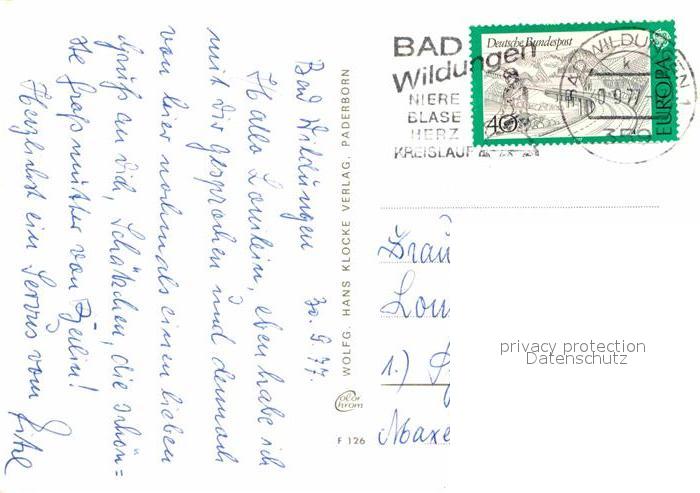 Bad Wildungen 30.9.77.
Hallo Louilein, eben habe ich
mit dir gesprochen und dennoch
von hier nochmals einen lieben
Gruß an dich, Schätzchen, die schön=
ste Großmutter von Berlin!
Herzlichst ein Servus vom
WOLFG. HANS KLOCKE VERLAG, PADERBORN
Color
chrom
F 126
BAD
Wildungen
NIERE
BLASE
HERZ
KREISLAUF
Deutsche Bundespost
40
EUROPA
BAD WILDUNGEN 1
k
9.77
Frau
Lou
1.)
privacy protection
Datenschutz